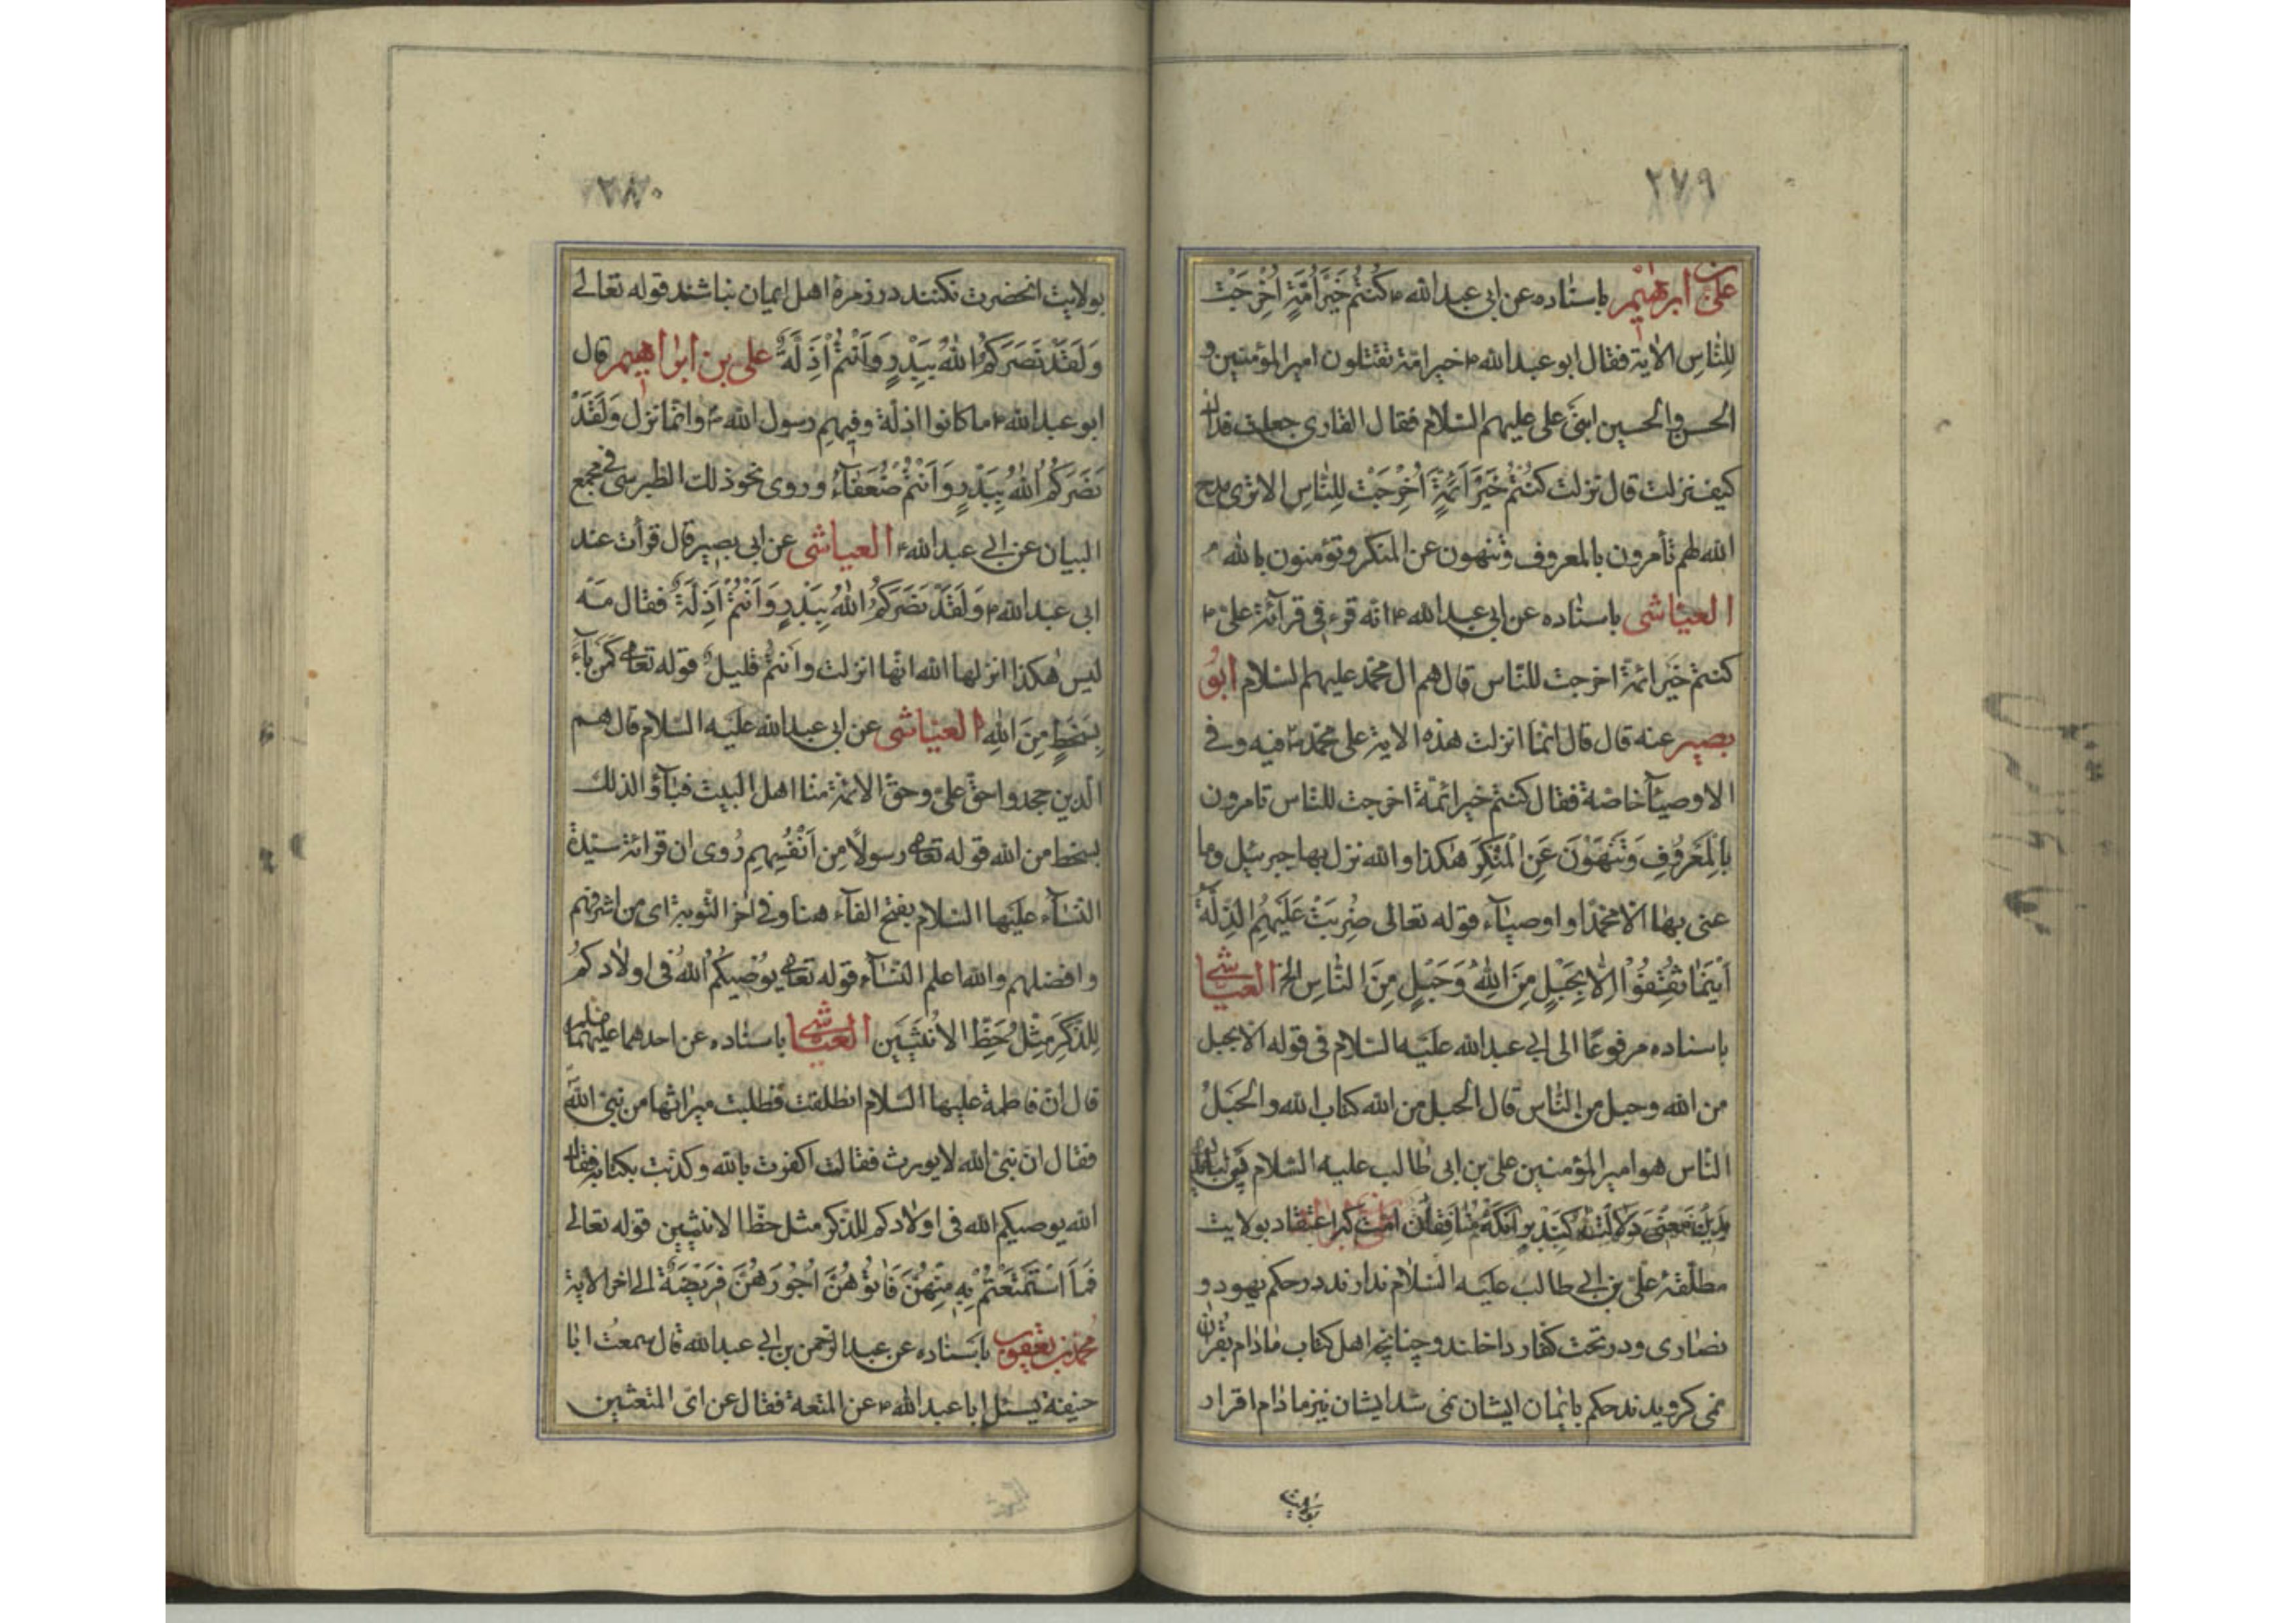 ٢٧٩
علی بن ابرهیم باسناده عن ابی عبدالله ۴ كُنْتُمْ خَيْرَ اُمَّةٍ اُخْرِجَتْ
لِلنّٰاسِ الاٰیة فقال ابو عبدالله ۴ خیر امّة تقتلون امیر المؤمنین و
الحسن والحسین ابنَیْ علی علیهم السّلام فقال القاری جعلت فداك
كیف نزلت قال نزلت كُنْتُمْ خَيْرَ اَئِمَّةٍ اُخْرِجَتْ لِلنّٰاسِ الا تری مدح
الله لهم تأمرون بالمعروف وتنهون عن المنكر وتؤمنون بالله
العیّاشی باسناده عن ابی عبدالله ۴ انّه قرء فی قرآئة علیّ ۴
كنتم خَیر ائمّة اخرجت للنّاس قال هم ال محمّد علیهم السّلام ابوُ
بصیر عنه قال قال انّما انزلت هذه الایة علی محمّد ص فیه وفی
الاوصیٰآ خاصّة فقال كنتم خیر ائمّة اخرجت للنّاس تامرون
بِالْمَعْرُوفِ وَتَنْهَوْنَ عَنِ الْمُنْكَرِ هٰكذا والله نزل بها جبرئیل وما
عنی بهٰا الّا محمّدًا واوصیٰآء قوله تعالی ضُرِبَتْ عَلَيْهِمُ الذِّلَّةُ
اَيْنَمٰا ثُقِفُوْا اِلّٰا بِحَبْلٍ مِنَ اللّٰهِ وَحَبْلٍ مِنَ النّٰاسِ الخ العیّاشی
باسناده مرفوعًا الی ابی عبدالله علیَه السّلام فی قوله الّا بحبل
من الله وحبل من النّاس قال الحبل من الله كتاب الله والحَبَلُ
النّاس هو امیر المؤمنین علیّ بن ابی طٰالب علیه السّلام
اعتقاد بولایت
مطلّقهٔ علیّ بن ابی طالب علیَه السّلام ندارند در حكم یهود و
نصٰاری ودر تحت كفّار داخلند وچنانچه اهل كتاب مٰادٰام بقران
نمی كرویدند حكم بایمٰان ایشان نمی شد ایشان نیز مادٰام اقرار
بولایت
٢٨٠
بولایت انحضرت نكنند در زمرهٔ اهل ایمان نباشند قوله تعٰالی
وَلَقَدْ نَصَرَكُمُ اللّٰهُ بِبَدْرٍ وَاَنْتُمْ اَذِلَّةٌ علی بن ابرٰاهیم قال
ابو عبدالله ۴ ما كانوا اذلّة وفیهم رسول الله ص وانّما نزل وَلَقَدْ
نَصَرَكُمُ اللّٰهُ بِبَدْرٍ وَاَنْتُمْ ضُعَفٰآءُ وروی نحو ذلك الطبرسی فی مجمع
البیان عن ابی عبدالله ۴ العیاشی عن ابی بصیر قال قرأت عند
ابی عبدالله ۴ وَلَقَدْ نَصَرَكُمُ اللّٰهُ بِبَدْرٍ وَاَنْتُمْ اَذِلَّةٌ فقال مَه
لیس هٰكذا انزلها الله انّها انزلت واَنتُمْ قلیلٌ قوله تعالی كَمَنْ بٰآءَ
بِسَخَطٍ مِنَ اللّٰهِ العیّاشی عن ابی عبدالله علیَه السّلام قال هم
الّذین جحدوا حقّ علیّ وحقّ الائمّة منّا اهل البیت فبٰآؤا لذلك
بسخط من الله قوله تعالی رسولًا مِن اَنْفُسِهِم رُوی ان قرائة سیّدة
النّسٰآء علیَها السّلام بفتح الفآء هنا وفی اخر التّوبة ای من اشرفهم
وافضلهم والله اعلم النّسٰآء قوله تعالی یوُصیكُمُ اللّٰهُ فی اولٰادِكُمْ
لِلذَّكَرِ مِثْلُ حَظِّ الاُنْثَيَيْن العیّاشی باسنٰاده عن احدهما علیهما
قال انّ فاطمة علیها السّلام انطلقت فطلبت میراثها من نبیّ الله
فقال انّ نبیّ الله لا یورث فقالت اكفرت بالله وكذّبت بكتابه فقال
الله یوصیكم الله فی اولٰادكم للذّكر مثل حظّ الانثیین قوله تعالی
فَمَا اسْتَمْتَعْتُمْ بِهِ مِنْهُنَّ فَاٰتُوْهُنَّ اُجُورَهُنَّ فَرِيْضَةً الی اخر الایة
محمّد بن یعقوب باسنٰاده عن عبد الرّحمن بن ابی عبدالله قال سمعتُ ابٰا
حنیفه یسئل ابا عبد اللّٰه ۴ عن المتعة فقٰال عن ایّ المتعتین